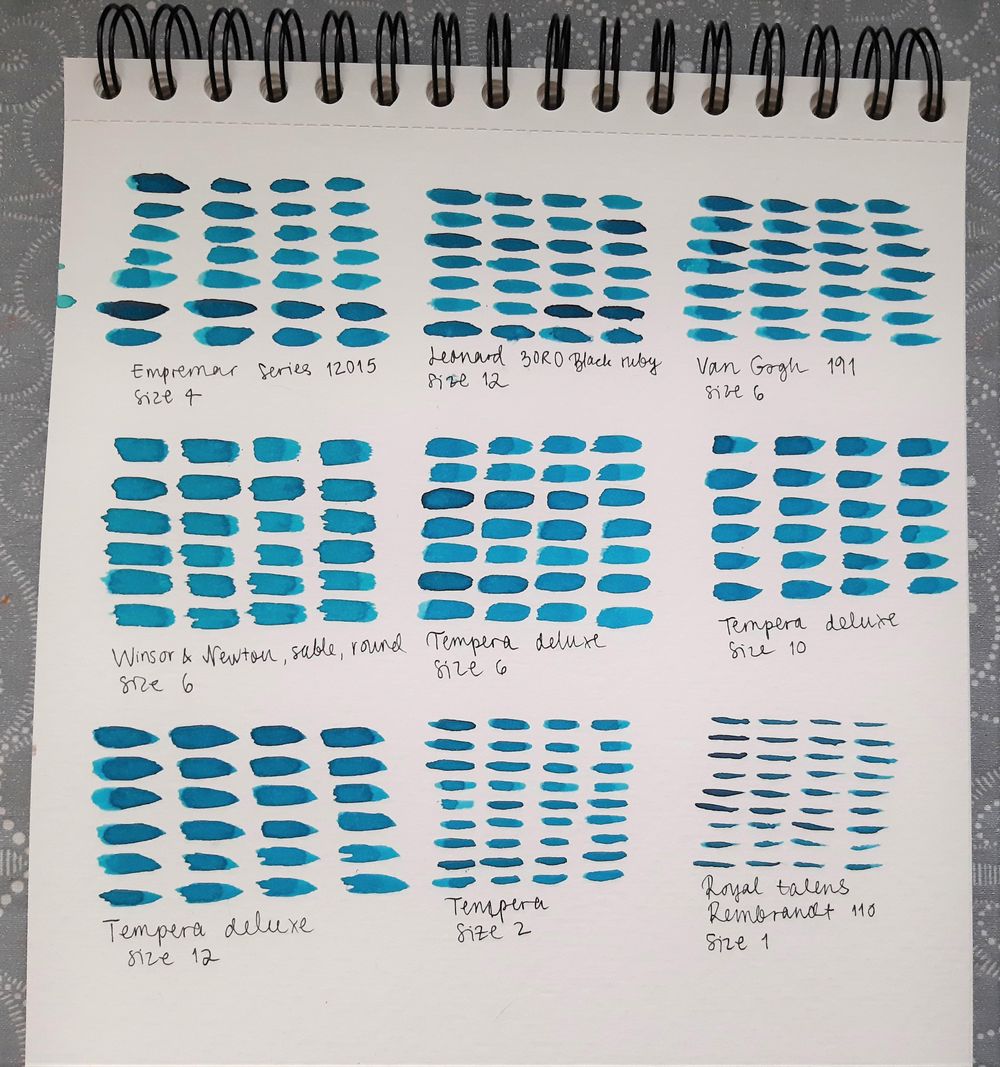 Empremar Series 12015
Size 4
Leonard 30RO Black ruby
Size 12
Van Gogh 191
Size 6
Winsor & Newton, sable, round
Size 6
Tempera deluxe
Size 6
Tempera deluxe
Size 10
Tempera deluxe
Size 12
Tempera
Size 2
Royal talens
Rembrandt 110
Size 1